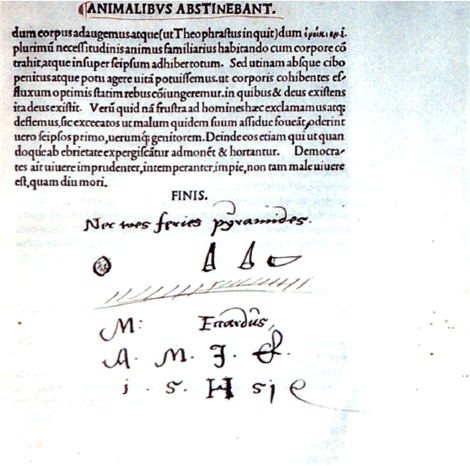 ANIMALIBVS ABSTINEBANT.
dum corpus adaugemus atque (ut Theophrastus inquit) dum
plurimū necessitudinis animus familiarius habitando cum corpore cō
trahit, atque insuper seipsum adhibet totum. Sed utinam absque cibo
penitus atque potu agere uitā potuissemus, ut corporis cohibentes ef/
fluxum optimis statim rebus cōiungeremur. in quibus & deus existens
ita deus existit. Verū quid nā frustra ad homines hæc exclamamus atq;
deflemus, sic excecatos ut malum quidem suum assidue foueāt, oderint
uero seipsos primo, uerumq; genitorem. Deinde eos etiam qui ut quan
doque ab ebrietate expergiscātur admonēt & hortantur. Democra/
tes ait uiuere imprudenter, intemperanter, impie, non tam male uiuere
est, quam diu mori.
FINIS.
Nec tres feries pyramides.
M:
A. M. J. &.
i. S. H S